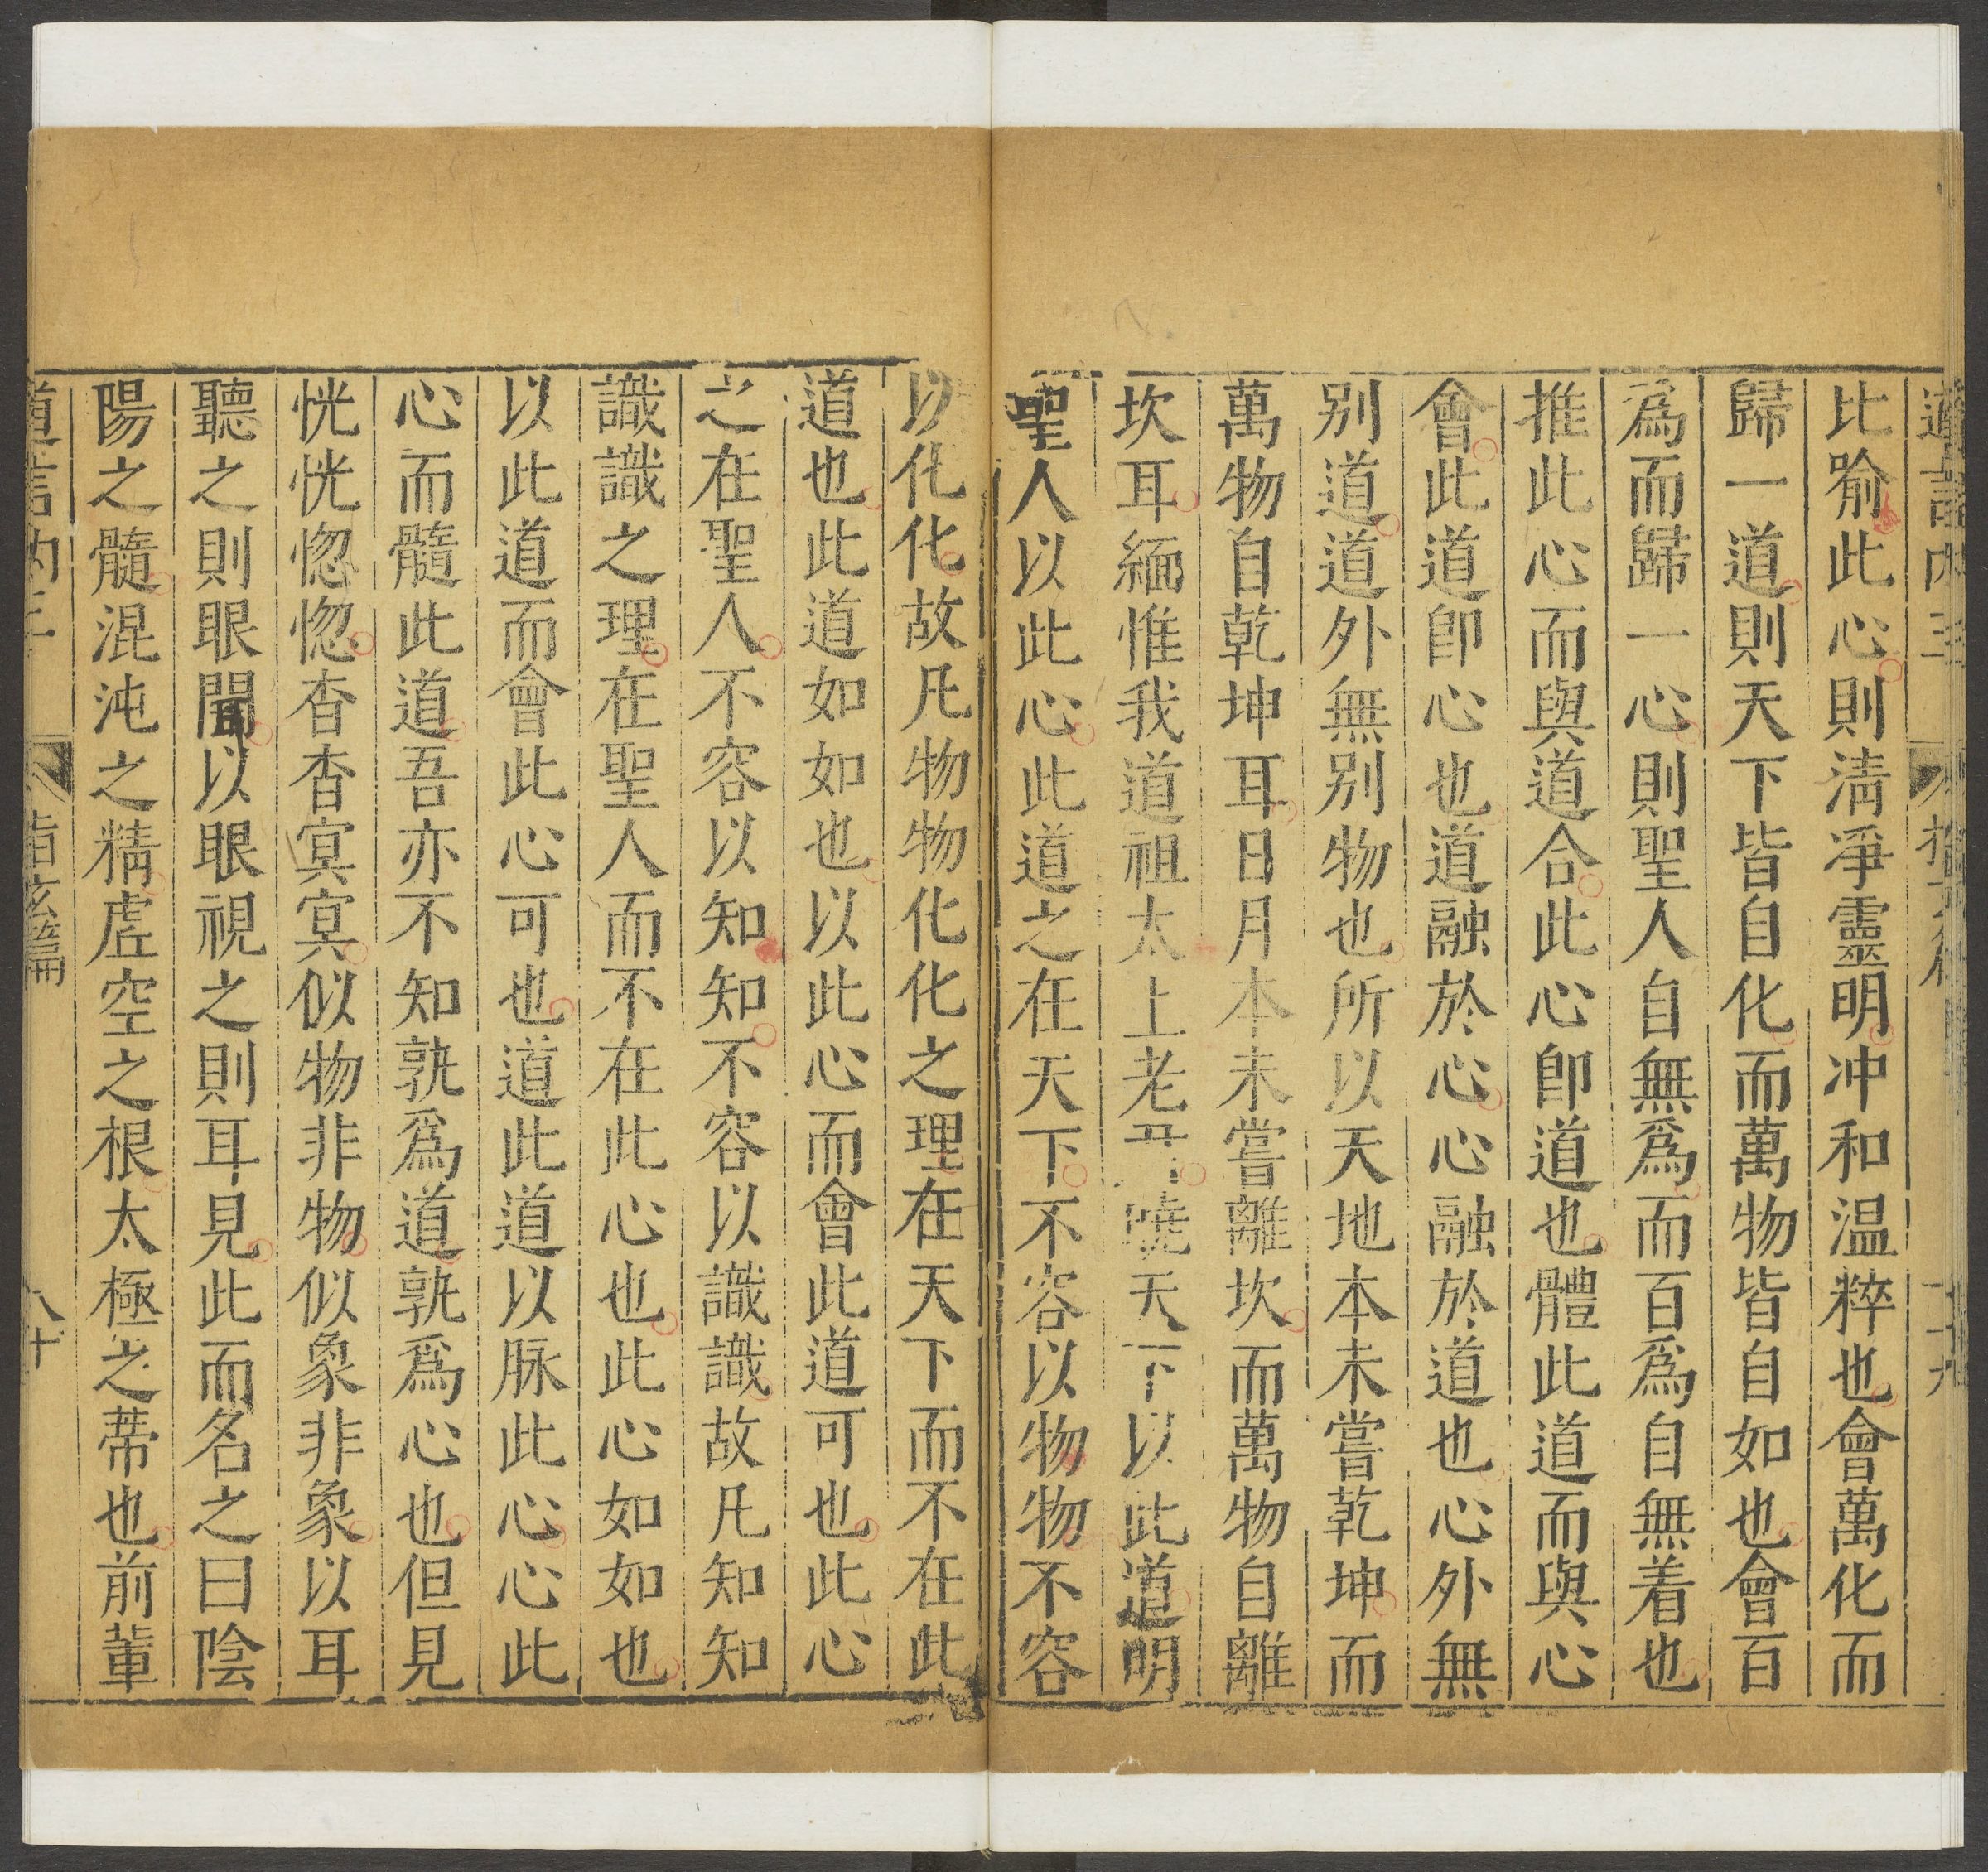 比喻此心則淸凈靈明冲和温粹也會萬化而
歸一道則天下皆自化而萬物皆自如也會百
爲而歸一心則聖人自無爲而百爲自無着也
推此心而與道合此心卽道也體此道而與心
會此道卽心也道融於心心融於道也心外無
别道道外無别物也所以天地本未嘗乾坤而
萬物自乾坤耳日月本未嘗離坎而萬物自離
坎耳緬惟我道祖太上老君曉天下以此道明
聖人以此心此道之在天下不容以物物不容
以化化故凡物物化化之理在天下而不在此
道也此道如如也以此心而會此道可也此心
之在聖人不容以知知不容以識識故凡知知
識識之理在聖人而不在此心也此心如如也
以此道而會此心可也道此道以脉此心心此
心而髓此道吾亦不知孰爲道孰爲心也但見
恍恍惚惚杳杳㝠㝠似物非物似象非象以耳
聽之則眼聞以眼視之則耳見此而名之曰陰
陽之髓混沌之精虚空之根太極之蒂也前輩
指玄篇
八十